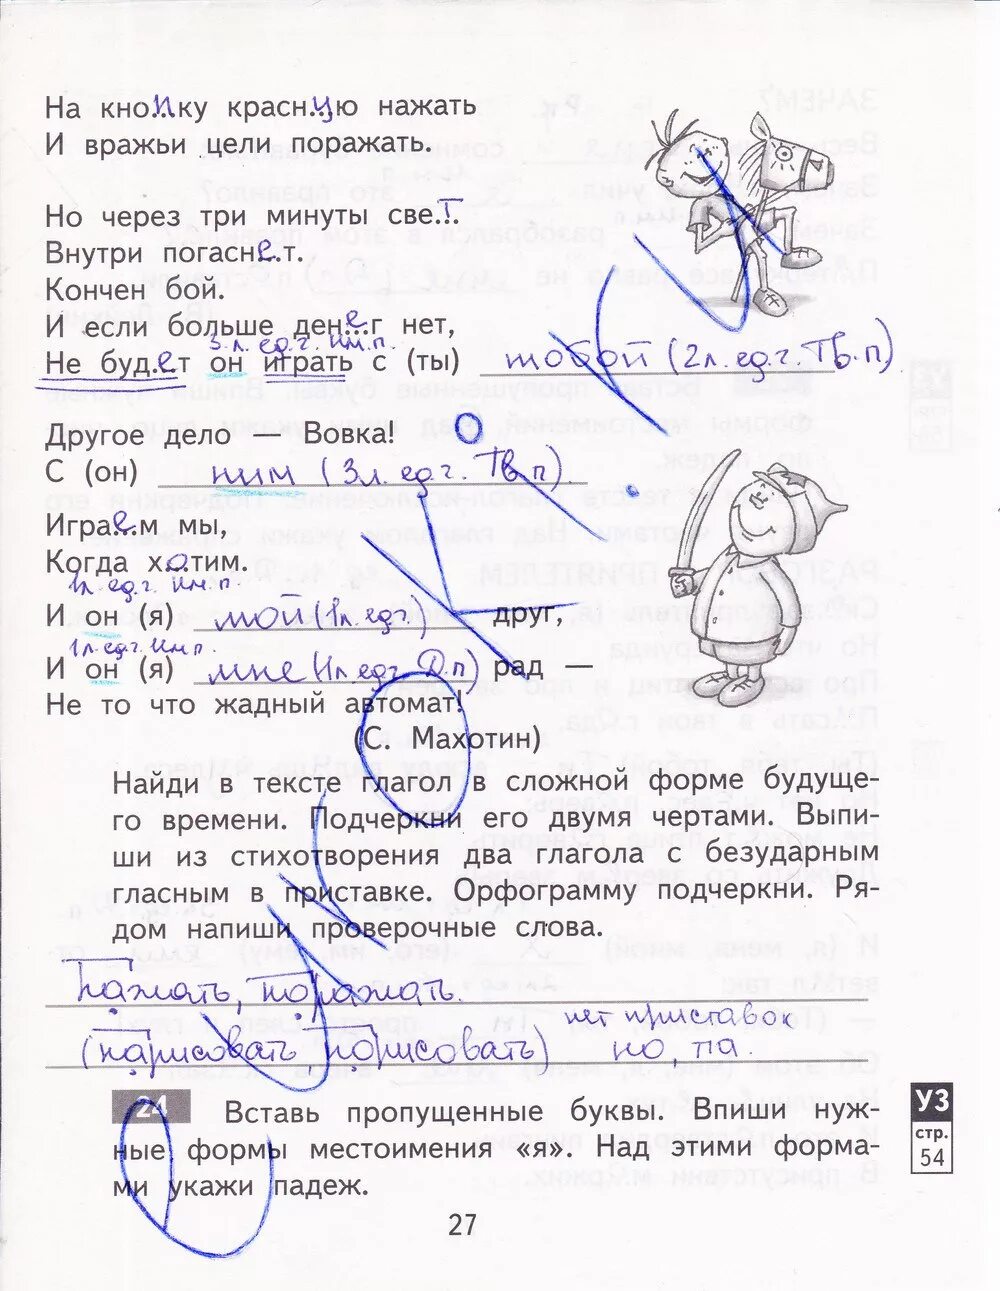 На кнопку красную нажать
И вражьи цели поражать.
Но через три минуты свет.
Внутри погаснет.
Кончен бой.
И если больше денег нет,
3 л. ед.ч. Им.п.
Не будет он играть с (ты) тобой (2 л. ед.ч. Тв.п)
Другое дело — Вовка!
С (он) ним (3 л. ед.ч. Тв.п)
Играем мы,
Когда хотим.
1 л. ед.ч. Им.п.
И он (я) мой (1 л. ед.ч) друг,
1 л. ед.ч. Им.п.
И он (я) мне (1 л. ед.ч. Д.п) рад —
Не то что жадный автомат!
(С. Махотин)
Найди в тексте глагол в сложной форме будуще-
го времени. Подчеркни его двумя чертами. Выпи-
ши из стихотворения два глагола с безударным
гласным в приставке. Орфограмму подчеркни. Ря-
дом напиши проверочные слова.
Нажать, поражать.
нет приставок
(нарисовать порисовать) но, па.
24 Вставь пропущенные буквы. Впиши нуж-
ные формы местоимения «я». Над этими форма-
ми укажи падеж.
УЗ
стр.
54
27